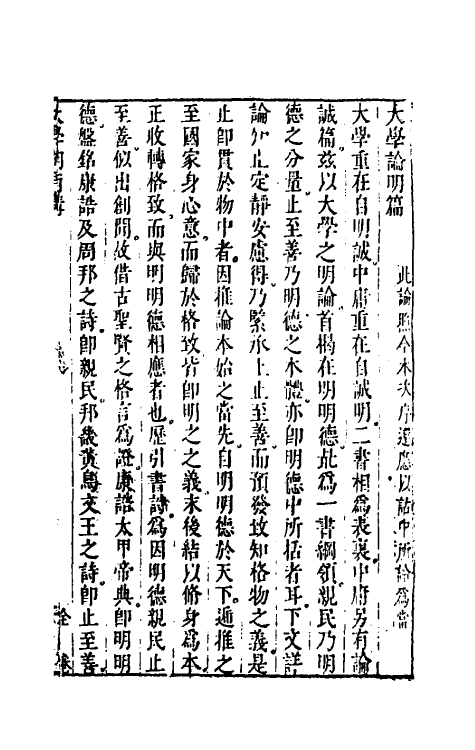 大學論明篇
此論照今本次序還應以詁中所論為當
大學重在自明誠中庸重在自誠明二書相爲表裏中庸另有論
誠篇茲以大學之明論首揭在明明德此爲一書綱領親民乃明
德之分量止至善乃明德之本體亦卽明德中所括者耳下文詳
論知止定靜安慮得乃緊承上止至善而預發致知格物之義是
止卽貫於物中者因推論本始之當先自明明德於天下遞推之
至國家身心意而歸於格致皆卽明之之義末後結以脩身爲本
正收轉格致而與明明德相應者也歷引書詩爲因明德親民止
至善似出創聞故借古聖賢之格言爲證康誥太甲帝典卽明明
德盤銘康誥及周邦之詩卽親民邦畿黃鳥文王之詩卽止至善